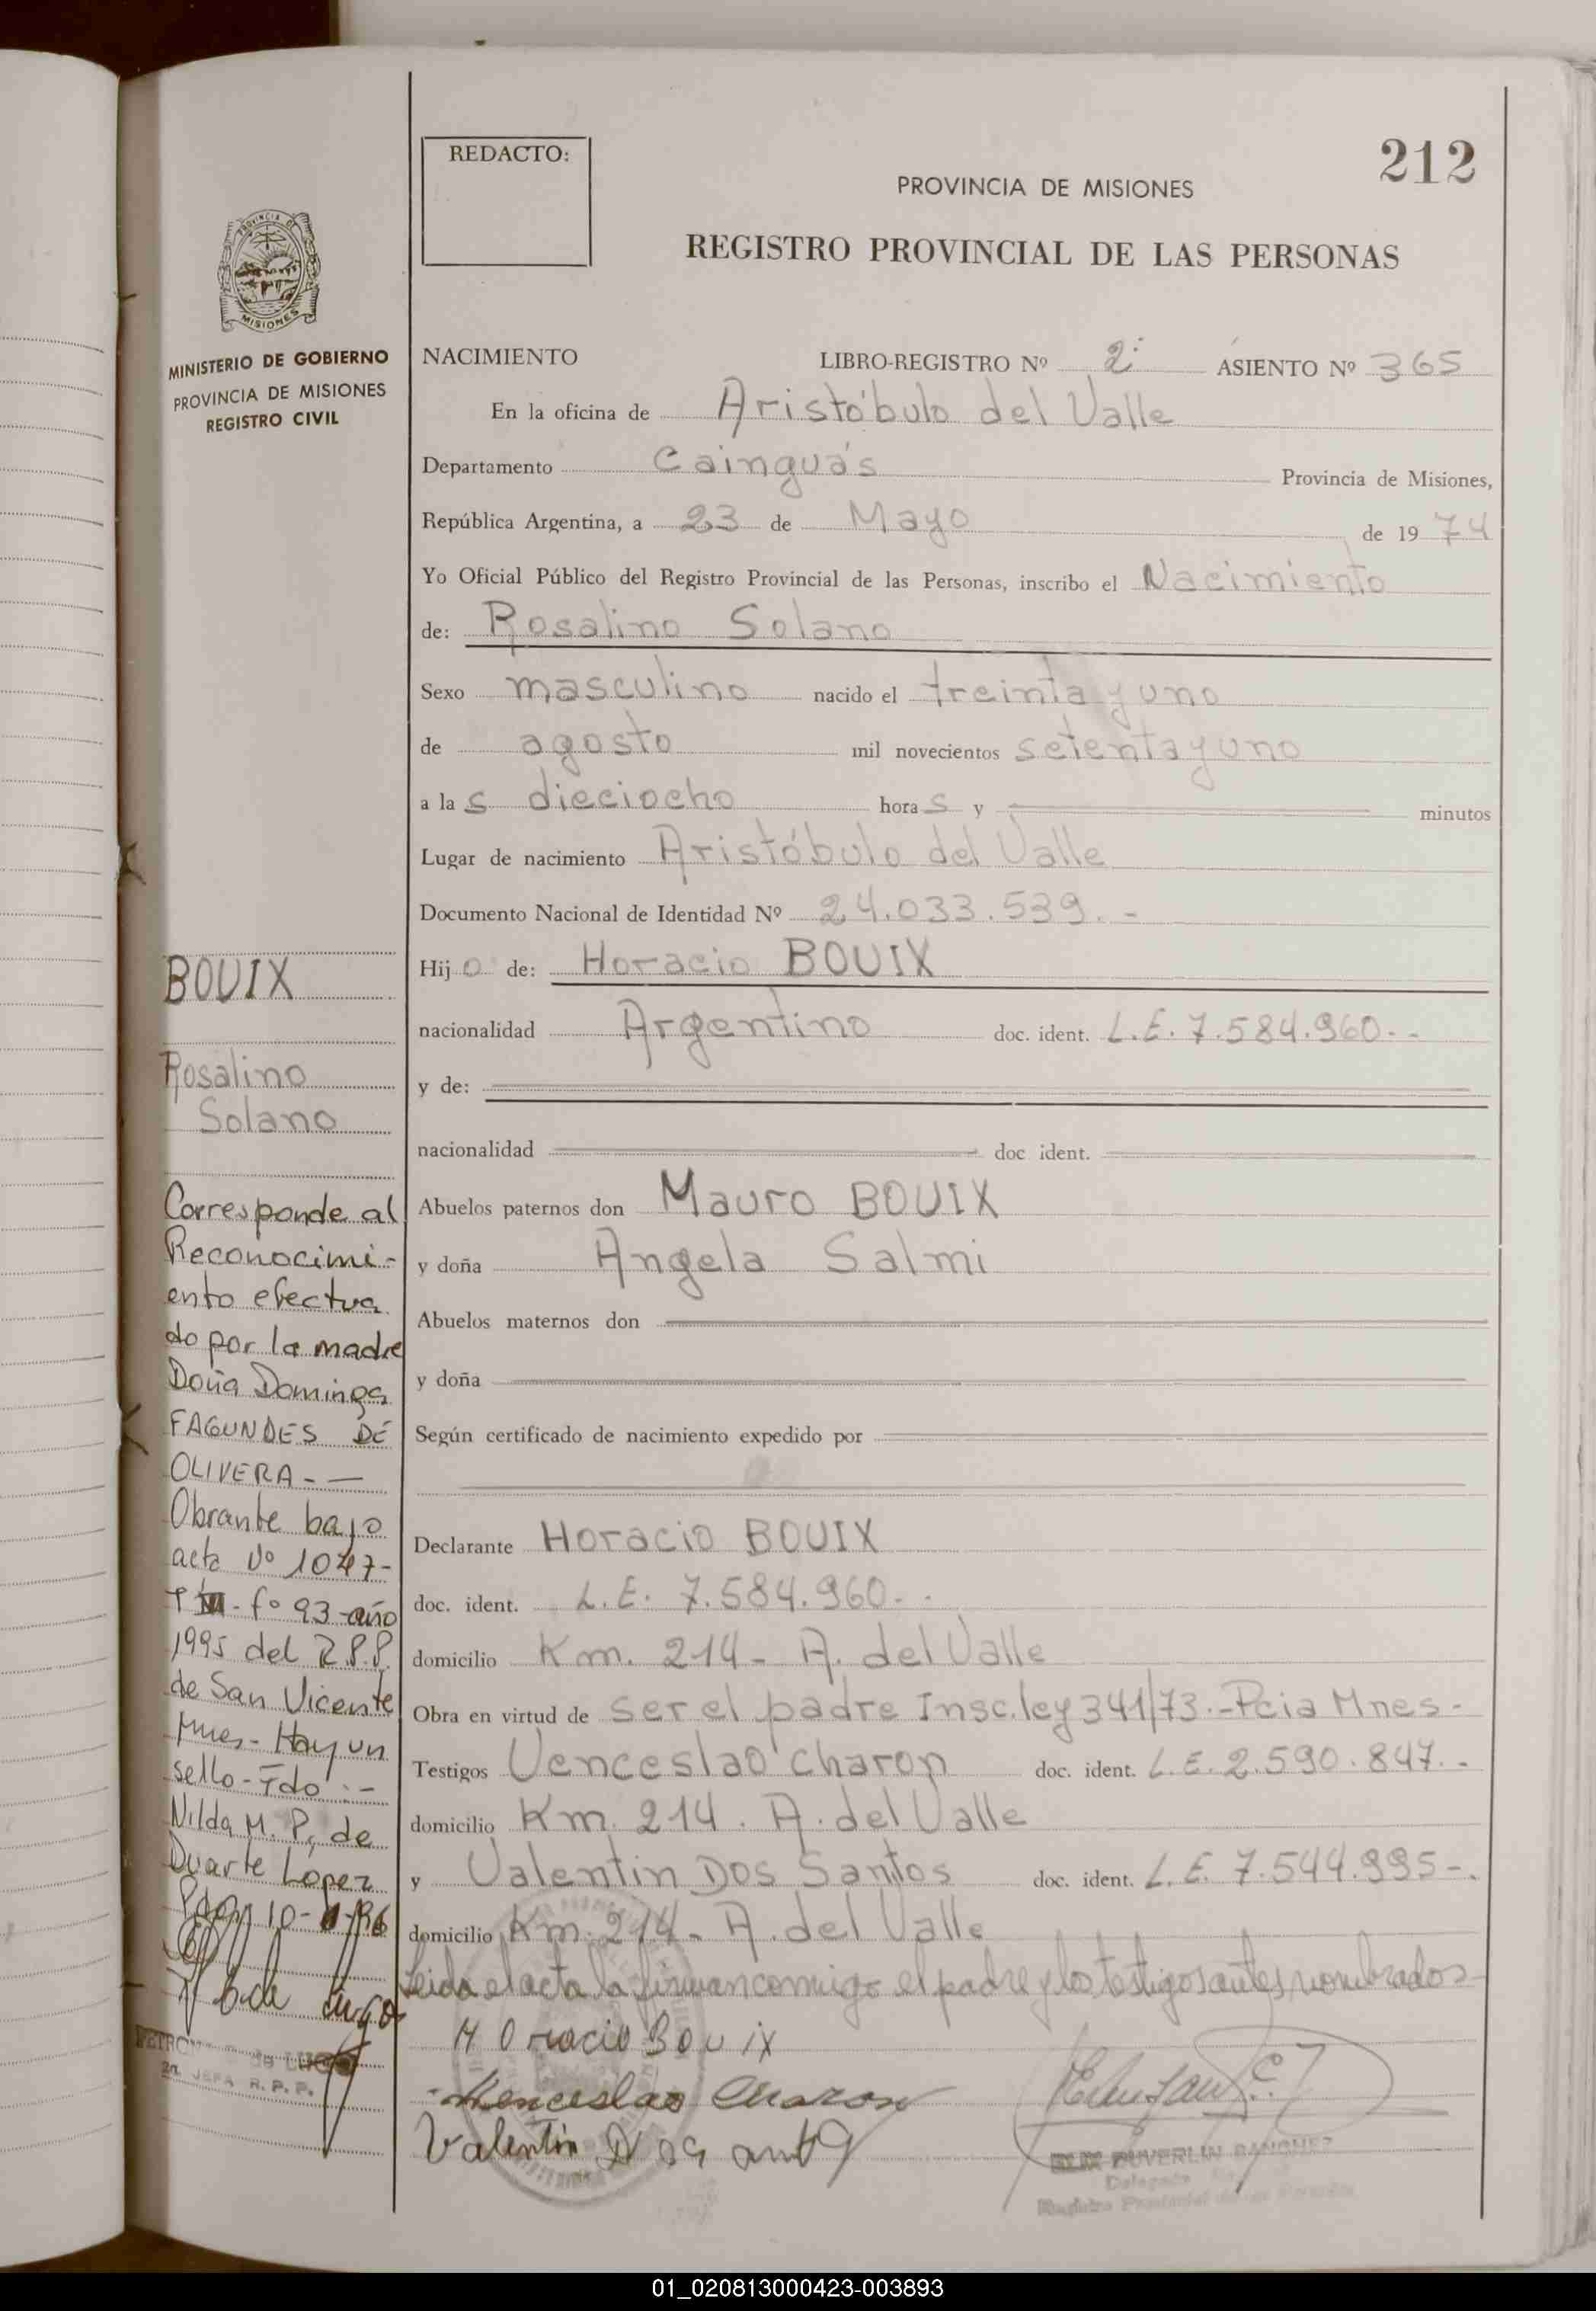 REDACTO:
212
PROVINCIA DE MISIONES
REGISTRO PROVINCIAL DE LAS PERSONAS
PROVINCIA DE
MISIONES
MINISTERIO DE GOBIERNO
PROVINCIA DE MISIONES
REGISTRO CIVIL
NACIMIENTO LIBRO-REGISTRO Nº 2º ASIENTO Nº 365
En la oficina de Aristóbulo del Valle
Departamento Cainguás Provincia de Misiones,
República Argentina, a 23 de Mayo de 1974
Yo Oficial Público del Registro Provincial de las Personas, inscribo el Nacimiento
de: Rosalino Solano
Sexo masculino nacido el treinta y uno
de agosto mil novecientos setenta y uno
a las dieciocho horas y minutos
Lugar de nacimiento Aristóbulo del Valle
Documento Nacional de Identidad Nº 24.033.539.-
Hijo de: Horacio BOUIX
nacionalidad Argentino doc. ident. L.E. 7.584.960.-
y de:
nacionalidad doc ident.
Abuelos paternos don Mauro BOUIX
y doña Angela Salmi
Abuelos maternos don
y doña
Según certificado de nacimiento expedido por
Declarante Horacio BOUIX
doc. ident. L.E. 7.584.960.-
domicilio Km. 214- A. del Valle
Obra en virtud de ser el padre Insc. ley 341/73.-Pcia Mnes-
Testigos Venceslao Charon doc. ident. L.E. 2.590.847.-
domicilio Km. 214. A. del Valle
y Valentin Dos Santos doc. ident. L.E. 7.544.995-.
domicilio Km. 214- A. del Valle
Leida el acta la firman conmigo el padre y los testigos antes nombrados
HOracio BOUIX
Venceslao Charon
Valentin
DUVERLIN SANCHEZ
Delegado
Registro Provincial de las Personas
BOUIX
Rosalino
Solano
Corresponde al
Reconocimi-
ento efectua
do por la madre
Doña Dominga
FAGUNDES DE
OLIVERA-—
Obrante bajo
acta Nº 1047-
Fº 93-año
1995 del R.P.P.
de San Vicente
Mnes- Hay un
sello-Fdo:-
Nilda M. P. de
Duarte Lopez
de Lugo
de LUGO
JEFA R.P.P.
01_020813000423-003893